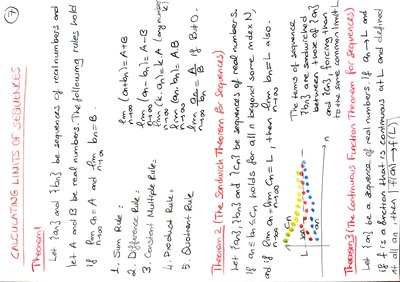 7
CALCULATING LIMITS OF SEQUENCES
Theorem 1
Let {an} and {bn} be sequences of real numbers and
let A and B be real numbers. The following rules hold
if lim n→∞ an = A and lim n→∞ bn = B.
1. Sum Rule: lim n→∞ (an+bn) = A+B
2. Difference Rule: lim n→∞ (an-bn) = A-B
3. Constant Multiple Rule: lim n→∞ (k.an) = k.A (any number k)
4. Product Rule: lim n→∞ (an.bn) = A.B
5. Quotient Rule lim n→∞ an/bn = A/B if B≠0.
Theorem 2 (The Sandwich Theorem for Sequences)
Let {an}, {bn} and {cn} be sequences of real numbers.
If an ≤ bn ≤ cn holds for all n beyond some index N,
and if lim n→∞ an = lim n→∞ cn = L, then lim n→∞ bn = L also.
L
cn
bn
an
n
The terms of sequence
{bn} are sandwiched
between those of {an}
and {cn}, forcing them
to the same common limit L
Theorem 3 (The Continuous Function Theorem for Sequences)
Let {an} be a sequence of real numbers. If an→L and
if f is a function that is continuous at L and defined
at all an, then f(an)→f(L)